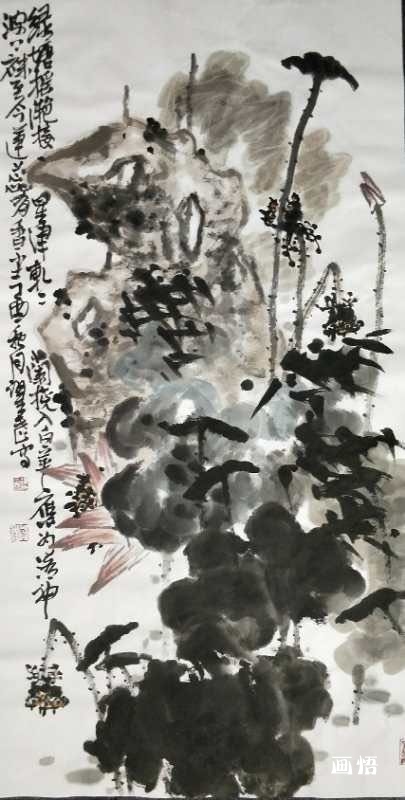 绿塘摇滟接星津轧々兰桡入白苹应为洛神
波上袜至今莲蕊有香尘丁酉秋月写
画悟